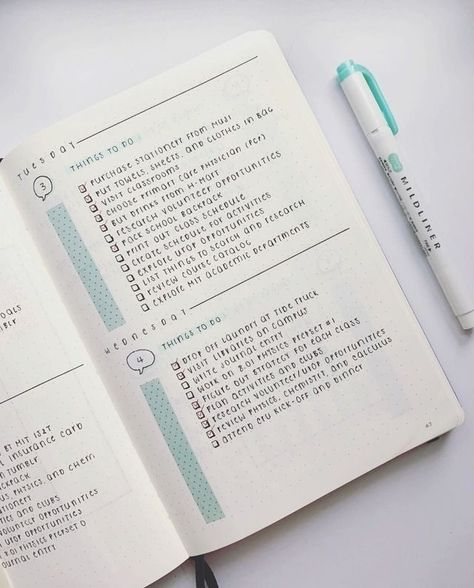 TUESDAY
3
THINGS TO DO
PURCHASE STATIONERY FROM MUJI
PUT TOWELS, SHEETS, AND CLOTHES IN BAG
VISIT CLASSROOMS
CHOOSE PRIMARY CARE PHYSICIAN (PCP)
BUY DRINKS FROM H-MART
RESEARCH VOLUNTEER OPPORTUNITIES
PACK SCHOOL BACKPACK
PRINT OUT CLASS SCHEDULE
CREATE SCHEDULE FOR ACTIVITIES
EXPLORE UROP OPPORTUNITIES
LIST THINGS TO SEARCH AND RESEARCH
REVIEW COURSE CATALOG
EXPLORE MIT ACADEMIC DEPARTMENTS
WEDNESDAY
4
THINGS TO DO
DROP OFF LAUNDRY AT TIDE TRUCK
VISIT LIBRARIES ON CAMPUS
WRITE JOURNAL ENTRY
WORK ON 8.01 PHYSICS PREPSET #1
FIGURE OUT STRATEGY FOR EACH CLASS
PLAN ACTIVITIES AND CLUBS
RESEARCH VOLUNTEER/UROP OPPORTUNITIES
REVIEW PHYSICS, CHEMISTRY, AND CALCULUS
ATTEND CPU KICK-OFF AND DINNER
47
MILDLINER
INSURANCE CARD
TUMBLR
PHYSICS, AND CHEM
AND CLUBS
OPPORTUNITIES
UROP OPPORTUNITIES
PHYSICS PREPSET 0
ENTRY